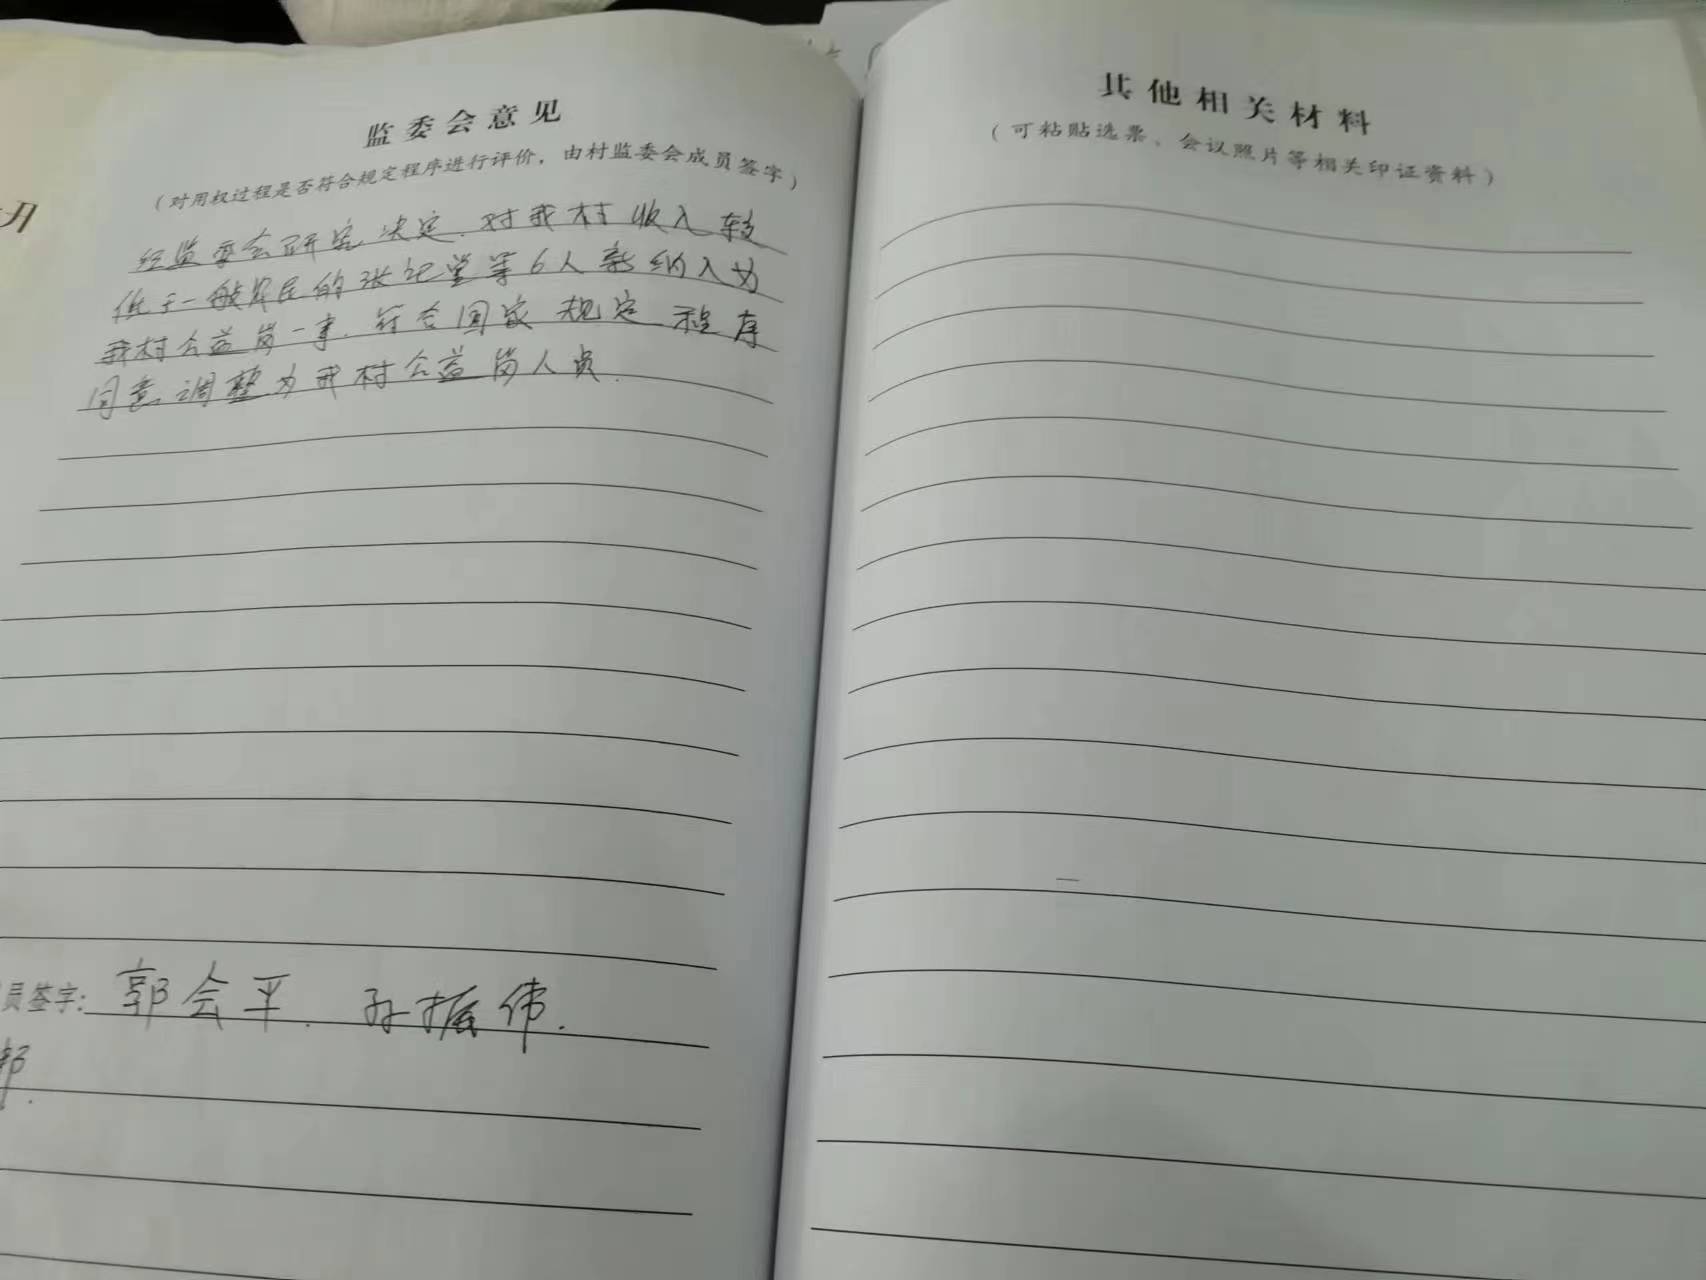 监委会意见
（对用权过程是否符合规定程序进行评价，由村监委会成员签字）
经监委会研究决定，对我村收入较
低于一般农民的张记堂等6人新纳入为
我村公益岗一事，符合国家规定程序
同意调整为我村公益岗人员.
员签字：郭会平. 孙振伟.
其他相关材料
（可粘贴选票、会议照片等相关印证资料）